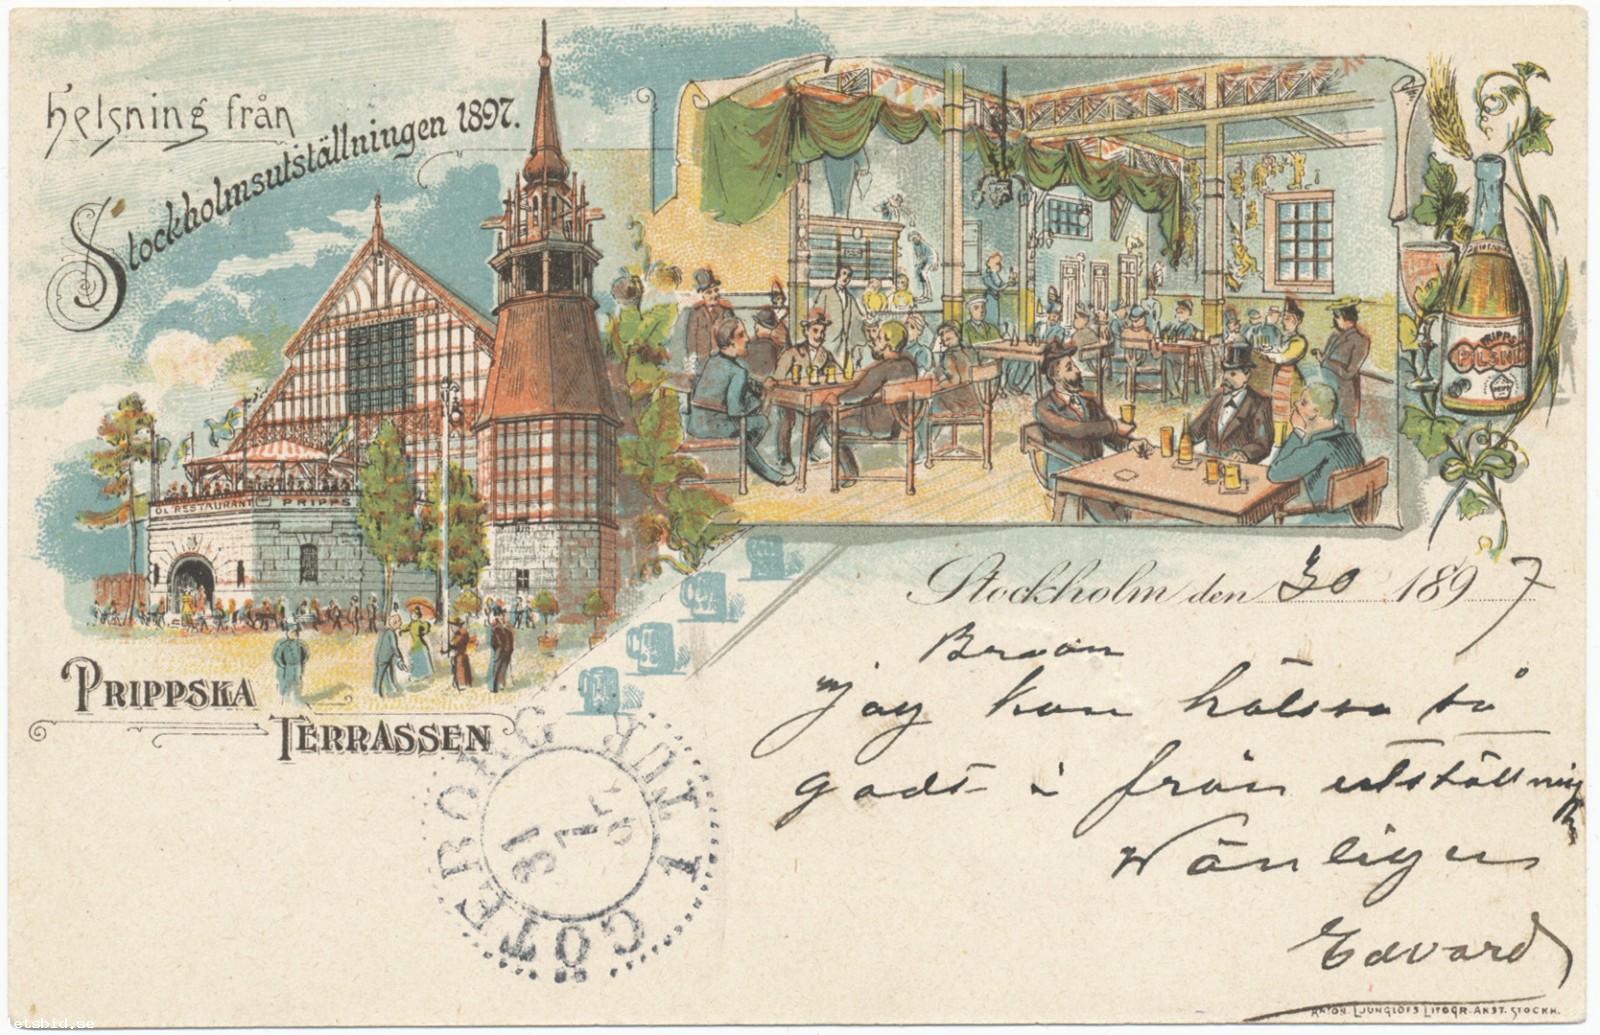 Helsning från
Stockholmsutställningen 1897.
ÖL RESTAURANT PRIPPS
PRIPPS
PILSNER
PRIPPSKA
TERRASSEN
Stockholm den 30 1897
jag kan hälsa så
godt i från utställning
Vänligen
Edvard
GÖTEBORG
31
7
97
ANTON. LJUNGLÖFS LITOGR. ANST. STOCKH.
letsbid.se